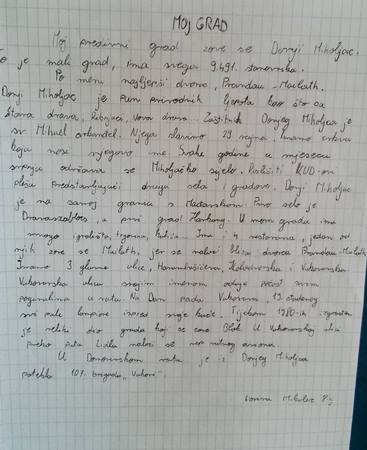 MOJ GRAD
Moj predivni grad zove se Donji Miholjac.
To je mali grad, ima svega 9.491 stanovnika.
Po meni najljepši dvorac, Prandau - Mailath.
Donji Miholjac je pun prirodnih ljepota kao što su
Stara drava, Ribnjaci, Nova drava. Zaštitnik Donjeg Miholjca je
sv. Mihael arkanđel. Njega slavimo 29. rujna. Imamo crkvu
koja nosi njegovo ime. Svake godine u mjesecu
srpnju održava se Miholjačko sijelo. Različiti KUD-ovi
plešu predstavljajući druga sela i gradove. Donji Miholjac
je na samoj granici s Mađarskom. Prvo selo je
Dravaszabolcs, a prvi grad Harkany. U mom gradu ima
mnogo trgovina, Ima 4 restorana, jedan od
njih zove se Mailath, jer se nalazi blizu dvorca Prandau-Mailath.
Imamo 3 glavne ulice, Kolodvorska i Vukovarska.
Vukovarska ulica svojim imenom odaje počast svim
poginulima u ratu. Na Dan pada Vukovara, 18. studenog
svi pale lampione ispred svoje kuće. Tijekom 1980-ih izgrađen
je veliki dio grada koji se zove Blok. U Vukovarskoj ulici
preko puta Lidla nalazi se
U Domovinskom ratu je iz Donjeg Miholjca
potekla 107. brigada „